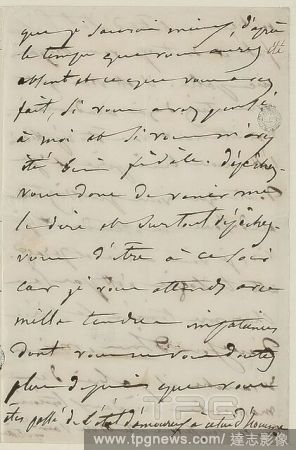 que je saurai mieux, d'après
le temps que vous aurez été
absent et ce que vous avez
fait, si vous avez pensé
à moi et si vous m'avez
été bien fidèle. dépêchez
vous donc de venir me
le dire et surtout dépêchez-
vous d'être à ce soir
car je vous attends avec
mille tendres impatiences
dont vous ne vous doutez
plus depuis que vous
êtes passé de l'état d'amoureux à celui d'homme
TPG
www.tpgnews.com / 達志影像